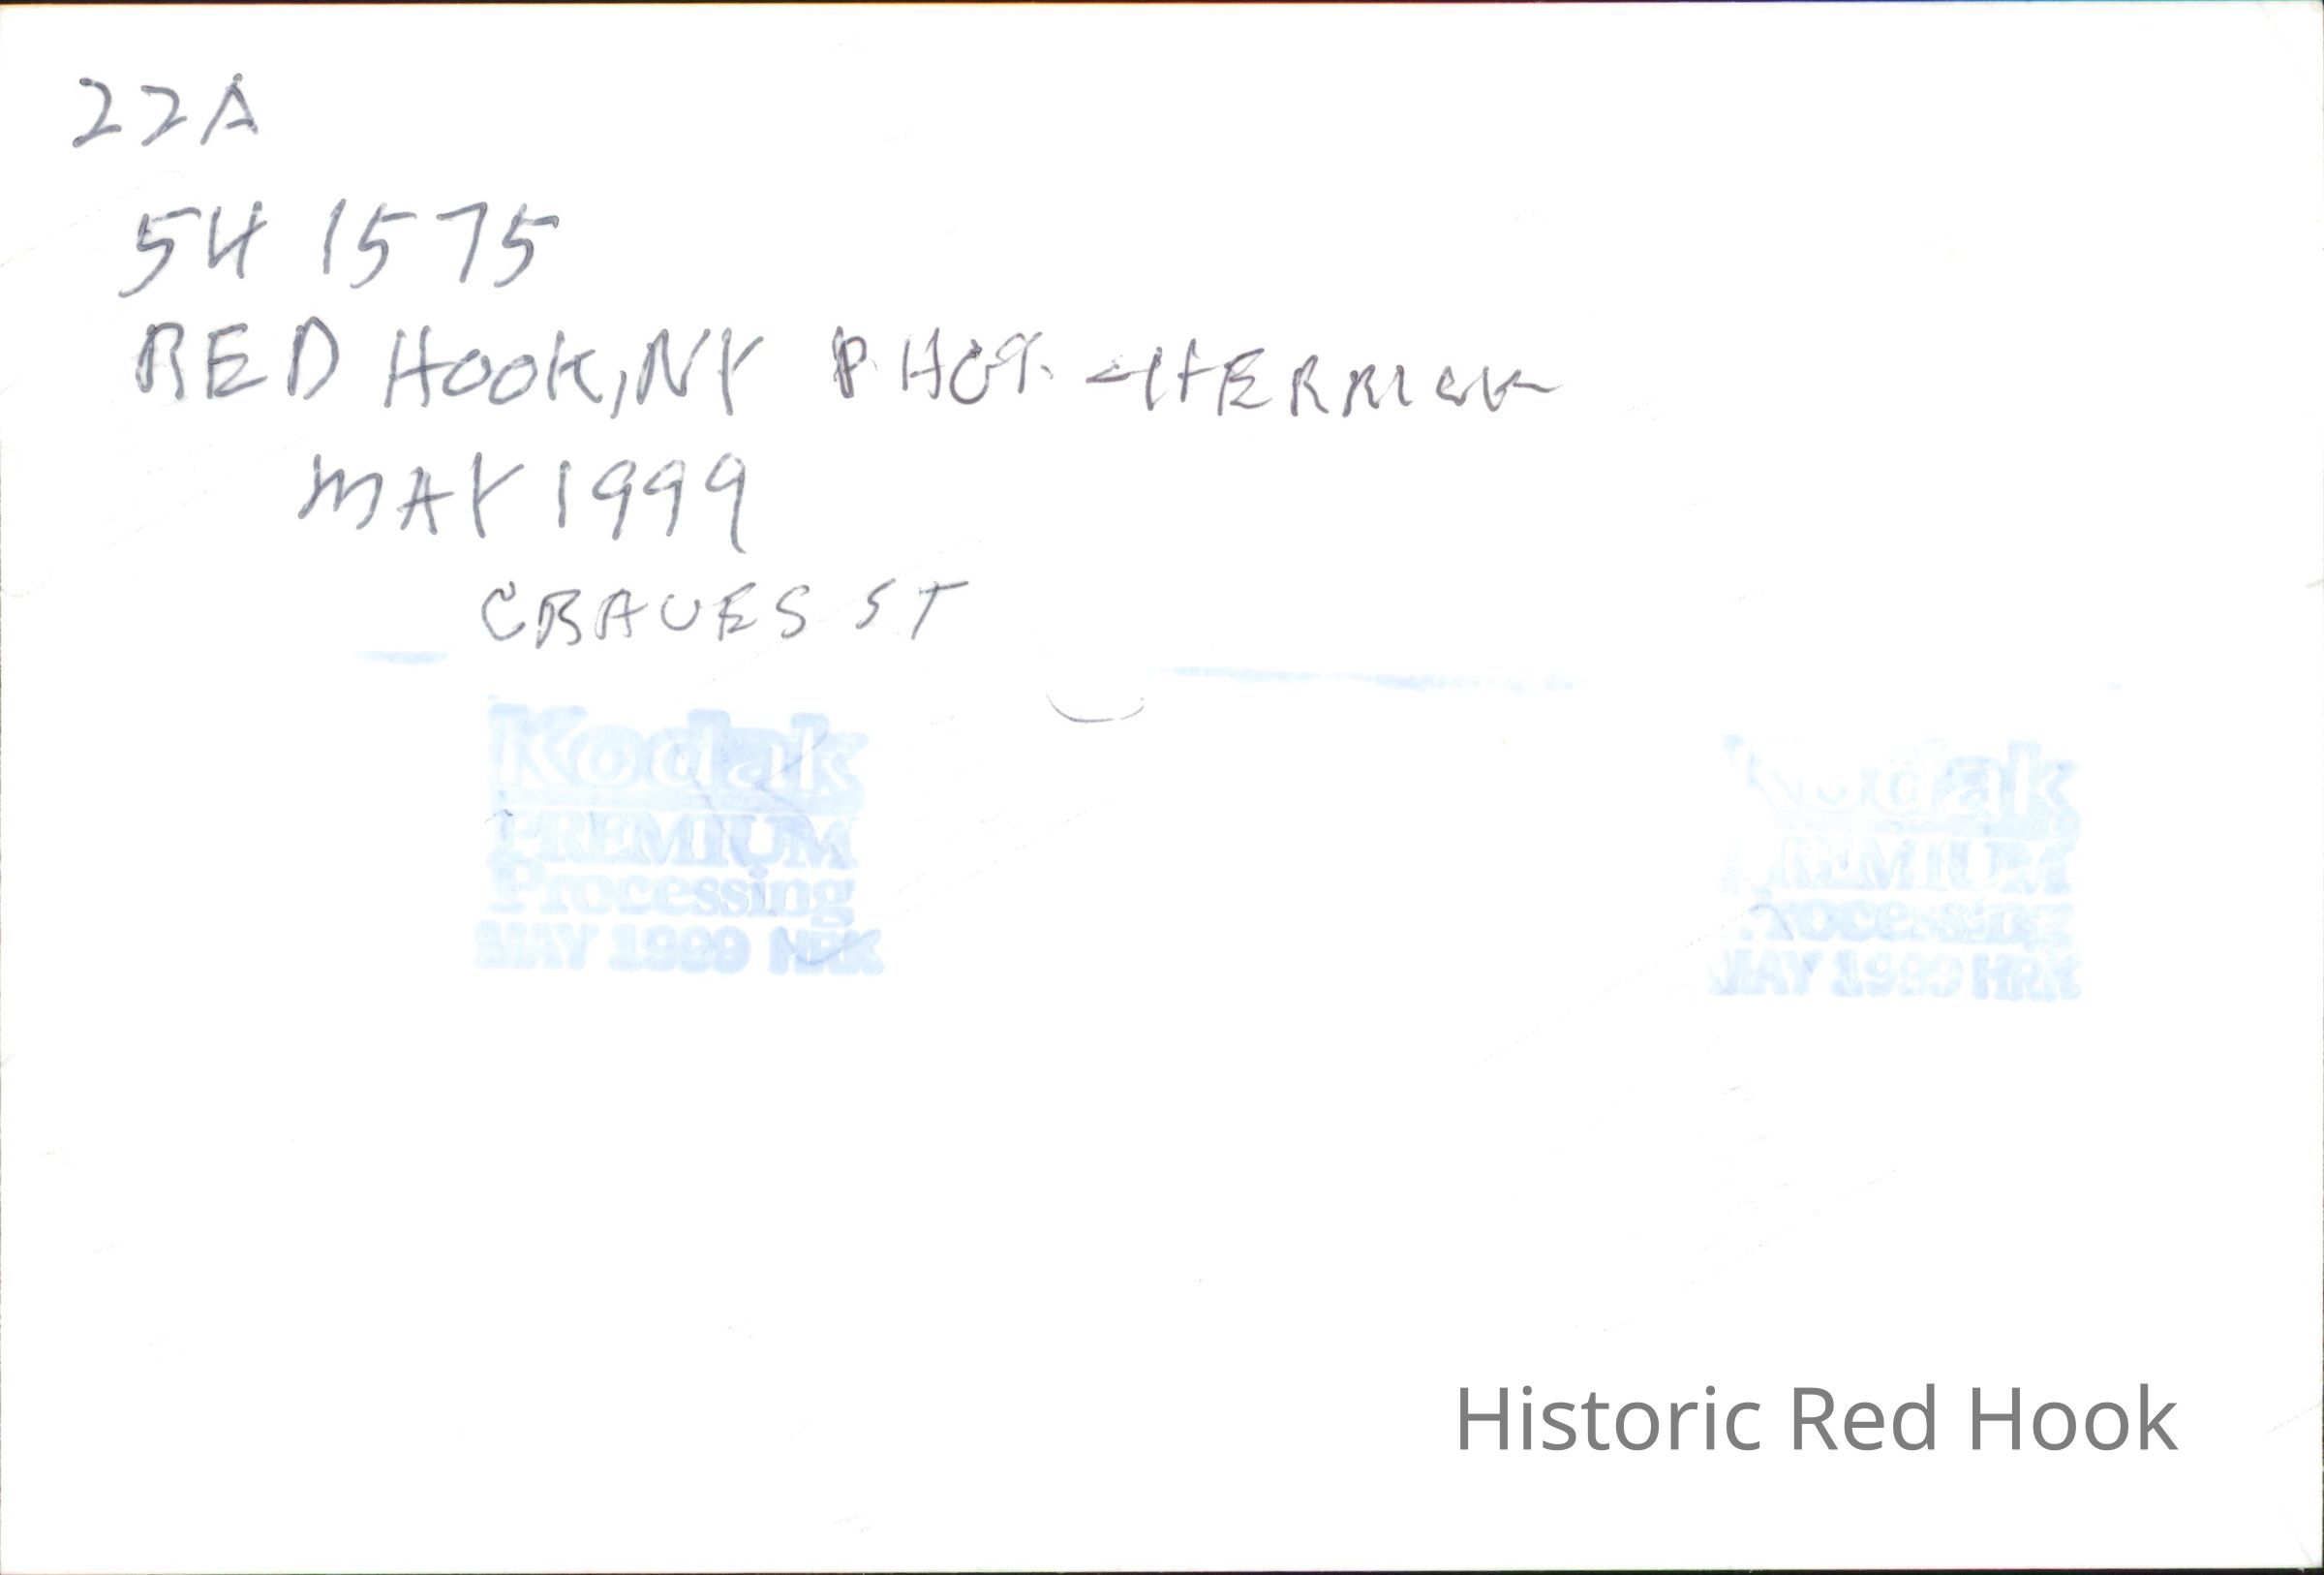 22A
54 1575
RED HOOK, NY PHOT. - HERRICK
MAY 1999
GRAVES ST
Kodak
PREMIUM
Processing
MAY 1999 HRK
Kodak
PREMIUM
Processing
MAY 1999 HRK
Historic Red Hook